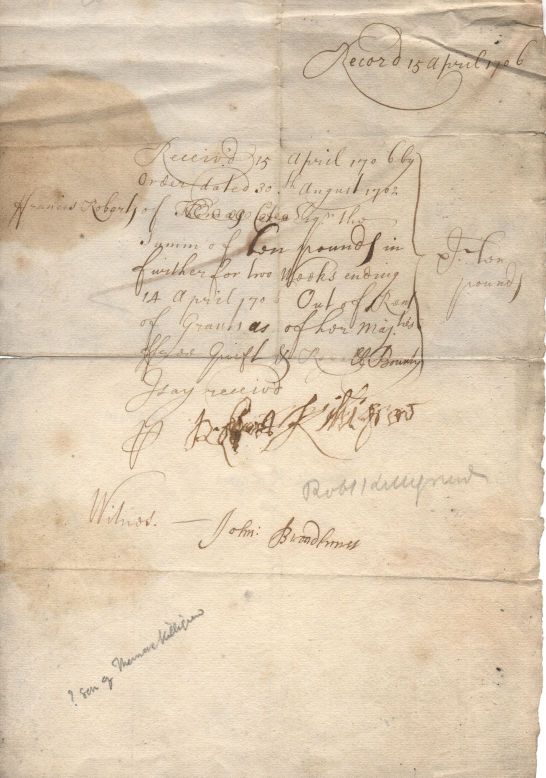 Record 15 April 1706
Receiv'd 15 April 1706 by
Order dated 30th August 1702
ffrancis Roberts of Esqr. the
Summ of ten pounds in
further for two Weeks ending
14 April 1706 Out of Rent
of Grants as of her Majties
ffree Guift & Bounty
I say receivd
£ ten
pounds
Robert Killigrew
Robt Killigrew
Witnes. — John: Broadhurst
? Son of Thomas Killigrew